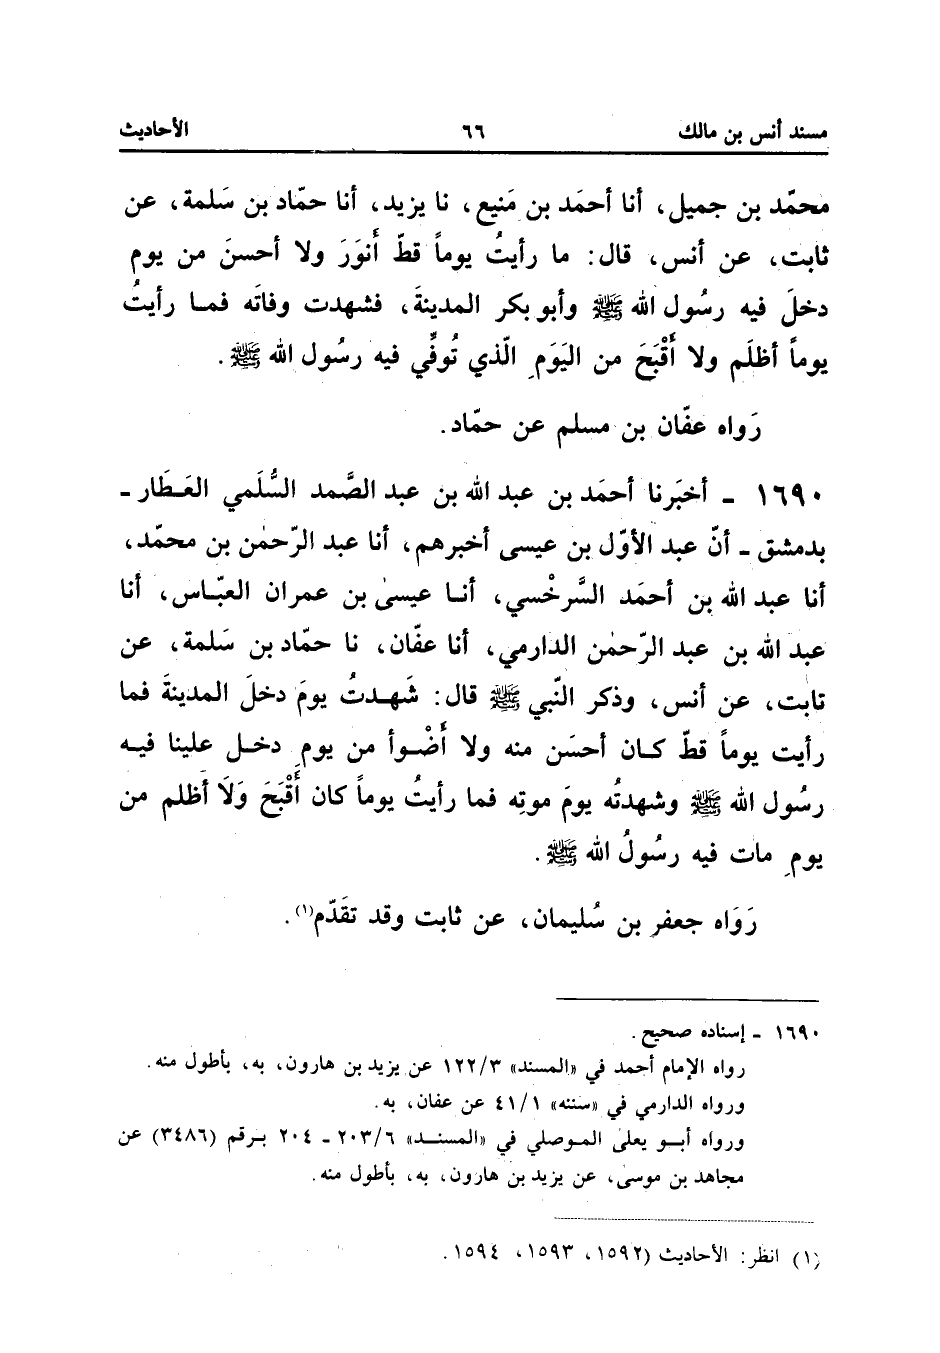 مسند أنس بن مالك ٦٦ الأحاديث
محمّد بن جميل، أنا أحمَد بن مَنيع، نا يزيد، أنا حمّاد بن سَلمة، عن
ثابت، عن أنس، قال: ما رأيتُ يوماً قطّ أَنوَرَ ولا أحسنَ من يوم
دخلَ فيه رسُول الله ﷺ وأبو بكر المدينةَ، فشهدت وفاتَه فمـا رأيتُ
يوماً أظلَم ولا أَقْبَحَ من اليَوَمِ الّذي تُوفِّي فيه رسُول الله ﷺ.
رَواه عفّان بن مسلم عن حمّاد.
١٦٩٠ - أخبَرنا أحمَد بن عبد الله بن عبد الصَّمد السُّلَمي العَـطَار -
بدمشق - أنّ عبد الأوّل بن عيسى أخبرهم، أنا عبد الرّحمٰن بن محمّد،
أنا عبد الله بن أحمَد السَّرخْسي، أنـا عيسىٰ بن عمران العبّـاس، أنا
عبد الله بن عبد الرّحمٰن الدارمي، أنا عفّان، نا حمّاد بن سَلمة، عن
ثابت، عن أنس، وذكر النّبي ﷺ قال: شَهدتُ يومَ دخلَ المدينةَ فما
رأيت يوماً قطّ كـان أحسَن منه ولا أَضْـوأ من يومِ دخـل علينا فيـه
رسُول الله ﷺ وشهدتُه يومَ موتِه فما رأيتُ يوماً كان أَقْبَحَ وَلَا أظلم من
يومِ مات فيه رسُولُ الله ﷺ.
رَوَاه جعفر بن سُليمان، عن ثابت وقد تقَدّم(١).
١٦٩٠ - إسناده صحيح.
رواه الإمام أحمد في «المسند» ١٢٢/٣ عن يزيد بن هارون، به، بأطول منه.
ورواه الدارمي في «سننه» ٤١/١ عن عفان، به.
ورواه أبـو يعلىٰ المـوصلي في «المسنـد» ٢٠٣/٦ - ٢٠٤ بـرقم (٣٤٨٦) عن
مجاهد بن موسىٰ، عن يزيد بن هارون، به، بأطول منه.
(١) انظر: الأحاديث (١٥٩٢، ١٥٩٣، ١٥٩٤.